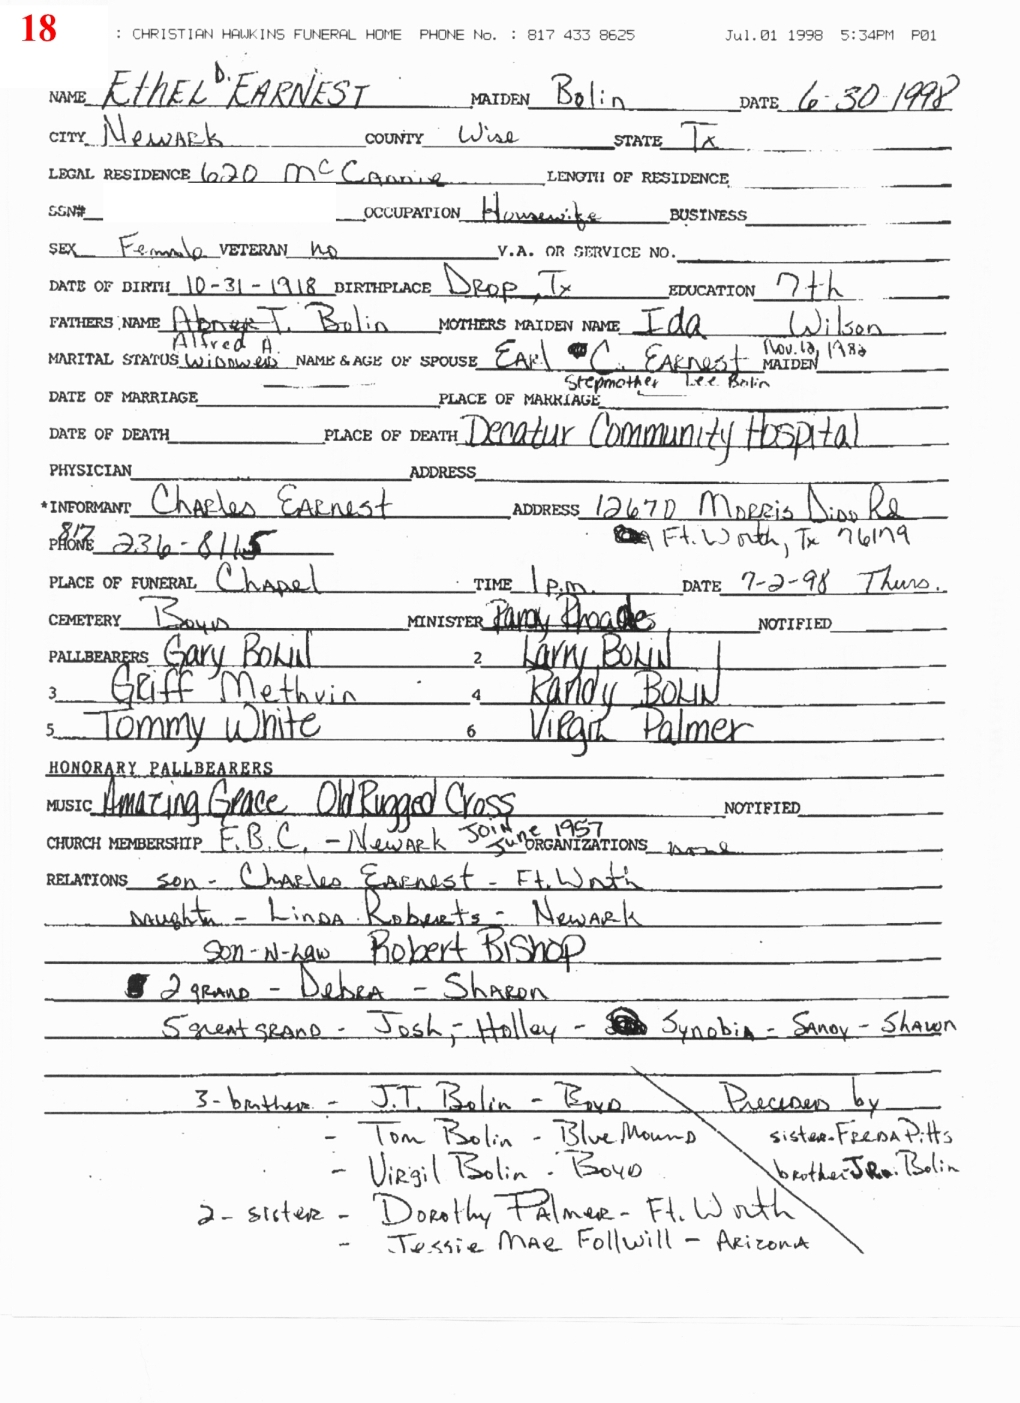 18
: CHRISTIAN HAWKINS FUNERAL HOME PHONE No. : 817 433 8625 Jul.01 1998 5:34PM P01
NAME EthEL D. EARNEST MAIDEN Bolin DATE 6-30-1998
CITY Newark COUNTY Wise STATE Tx
LEGAL RESIDENCE 620 McCannie LENGTH OF RESIDENCE
SSN# OCCUPATION Housewife BUSINESS
SEX Female VETERAN no V.A. OR SERVICE NO.
DATE OF BIRTH 10-31-1918 BIRTHPLACE Drop, Tx EDUCATION 7th
FATHERS NAME Abner T. Bolin MOTHERS MAIDEN NAME Ida Wilson
Alfred A. Nov. 12, 1982
MARITAL STATUS Widowed NAME & AGE OF SPOUSE EARL C. EARNEST MAIDEN
Stepmother Lee Bolin
DATE OF MARRIAGE PLACE OF MARRIAGE
DATE OF DEATH PLACE OF DEATH Decatur Community Hospital
PHYSICIAN ADDRESS
*INFORMANT Charles EARNEST ADDRESS 12670 Morris Dido Rd
PHONE 817 236-8115 Ft. Worth, Tx 76179
PLACE OF FUNERAL Chapel TIME 1 p.m. DATE 7-2-98 Thurs.
CEMETERY Boyd MINISTER Randy Rhoades NOTIFIED
PALLBEARERS Gary BOLIN 2 Larry BOLIN
3 Griff Methvin 4 Randy BOLIN
5 Tommy White 6 Virgil Palmer
HONORARY PALLBEARERS
MUSIC Amazing Grace Old Rugged Cross NOTIFIED
CHURCH MEMBERSHIP F.B.C. - Newark JOIN June 1957 ORGANIZATIONS none
RELATIONS son - Charles EARNEST - Ft. Worth
Daughter - Linda Roberts - Newark
son-N-Law Robert Bishop
2 grand - Debra - Sharon
5 great grand - Josh, - Holley - Synobia - Sandy - Shawn
3 - brothers - J.T. Bolin - Boyd Preceded by
- Tom Bolin - Blue Mound sister - Freda Pitts
- Virgil Bolin - Boyd brother - Bolin
2 - sister - Dorothy Palmer - Ft. Worth
- Jessie Mae Follwill - Arizona